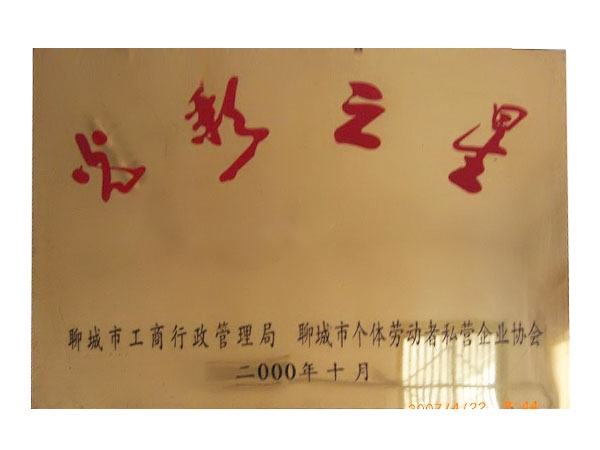 光彩之星
聊城市工商行政管理局 聊城市个体劳动者私营企业协会
二000年十月
2007/4/22